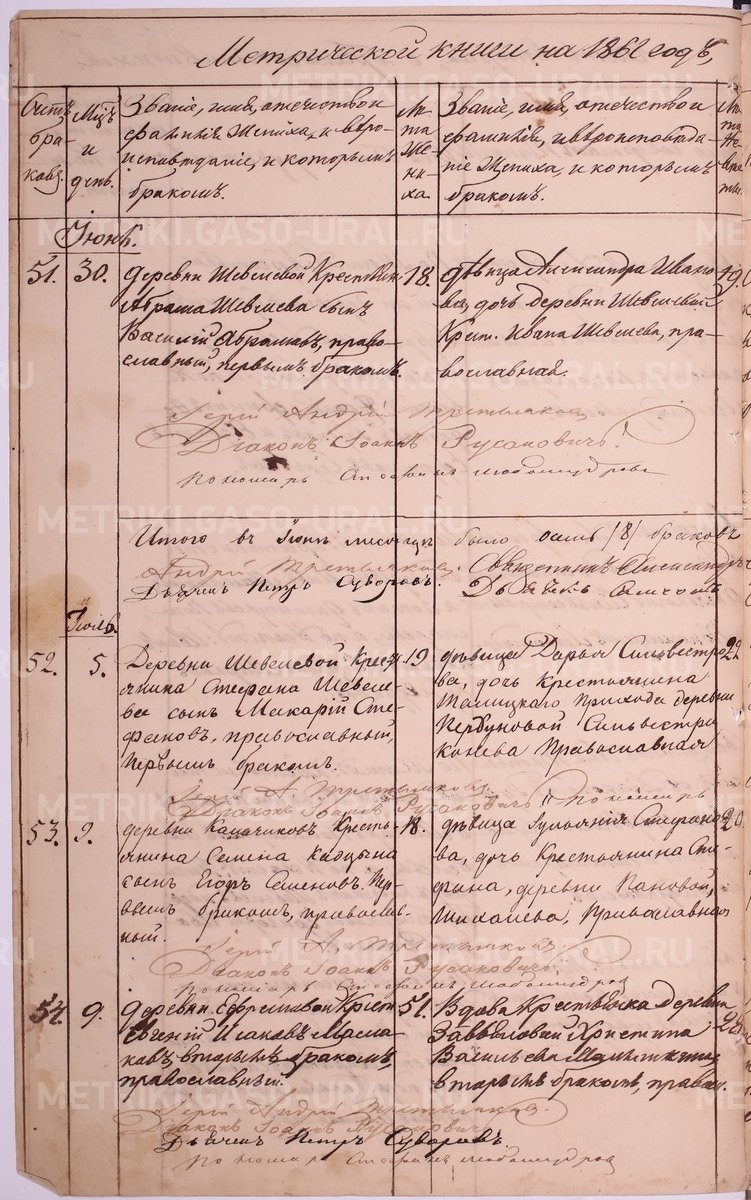 Метрической книги на 1861 годъ,
Счетъ бра-ковъ.
Мѣц. и день.
Званіе, имя, отечество и
фамилія жениха, и вѣро-
исповѣданіе, и которымъ
бракомъ.
Лѣ-та же-ни-ха.
Званіе, имя, отечество и
фамилія, и вѣроисповѣда-
ніе жениха, и которымъ
бракомъ.
Лѣ-та не-вѣс-ты.
Іюнь.
51. 30. деревни Шевелевой Крестьян.
Абрама Шевелева сынъ
Василій Абрамовъ, право-
славный, первымъ бракомъ.
18.
дѣвица Александра Ивано-
ва, дочь деревни Шевелевой
Крест. Ивана Шевелева, пра-
вославная.
19.
Іерей Андрей Третьяковъ
Діаконъ Іоаннъ Русановичъ.
Пономарь Любомудровъ
Итого въ Іюнѣ месяцѣ было осмь /8/ браковъ
Андрей Третьяковъ. Священникъ Александръ
Дьячекъ Петръ Суворовъ. Дьячекъ
Іюль.
52. 5. Деревни Шевелевой Крест-
янина Стефана Шевеле-
ва сынъ Макарій Сте-
фановъ, православный,
первымъ бракомъ.
19
дѣвица Дарья Сильвестро-
ва, дочь Крестьянина
Талицкаго прихода деревни
Пербуновой Сильвестра
Конева Православная
22
Іерей А. Третьяковъ
Діаконъ Іоаннъ Русановичъ Пономарь
53. 9. деревни Калачиковъ Кресть-
янина Семена
сынъ Егоръ Семеновъ. Пер-
вымъ бракомъ, православ-
ный.
18.
дѣвица Стефано-
ва, дочь Крестьянина Сте-
фана, деревни Пановой,
Михалева, Православная
20
Іерей А. Третьяковъ
Діаконъ Іоаннъ Русановичъ
Пономарь Любомудровъ
54. 9. деревни Ефремовой Крест.
Евгеній Исаковъ Масла-
ковъ, вторымъ бракомъ,
православный.
51.
Вдова Крестьянска деревни
Завьяловой Христина
Васильева
вторымъ бракомъ, правосл.
Іерей Андрей Третьяковъ.
Діаконъ Іоаннъ Русановичъ
Дьячекъ Петръ Суворовъ.
Пономарь Любомудровъ
METRIKI.GASO-URAL.RU